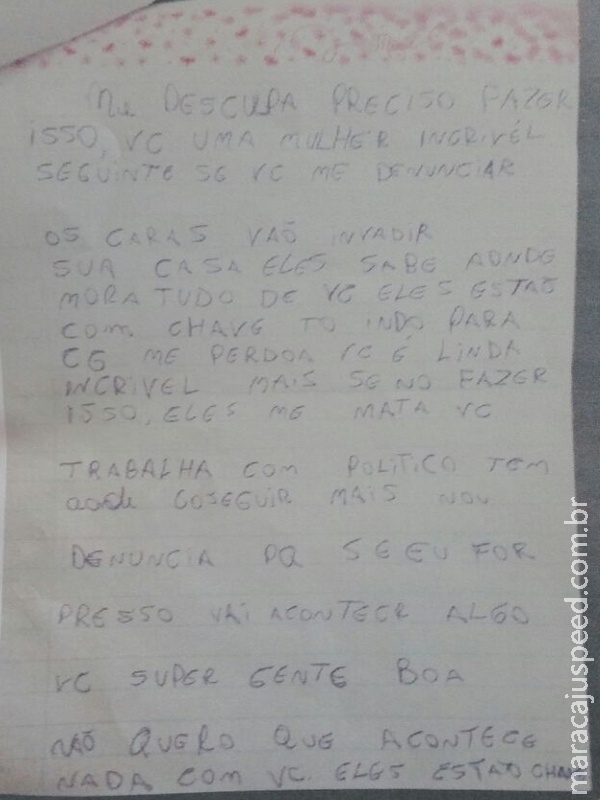 DESCUPA PRECISO FAZER
1550, VC UMA MULHER INCRIVÉL
SEGUINTE SE VC ME DENUNCIAR
OS CARAS VAÕ INVADIR
SUA CASA ELES SABE AONDE
MORA TUDO DE VC ELES ESTAÕ
COM CHAVE TO INDO PARA
CG ME PERDOA VC É LINDA
INCRIVEL MAIS SE NO FAZER
1550, ELES ME MATA VC
TRABALHA COM POLITICO TEM
COSEGUIR MAIS
DENUNCIA PQ SE EU FOR
PRESSO VAI ACONTECER ALGO
VC SUPER GENTE BOA
NÃO QUERO QUE ACONTECE
NADA COM VC. ELES ESTAO
maracajuspeed.com.br